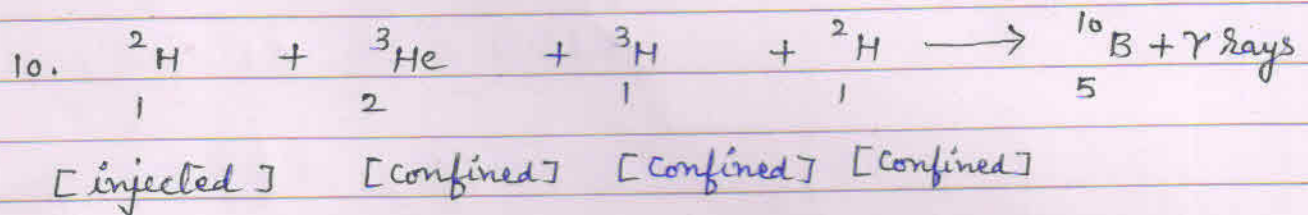 10. ²H + ³He + ³H + ²H ⟶ ¹⁰B + γ rays
1 2 1 1 5
[injected] [confined] [confined] [confined]